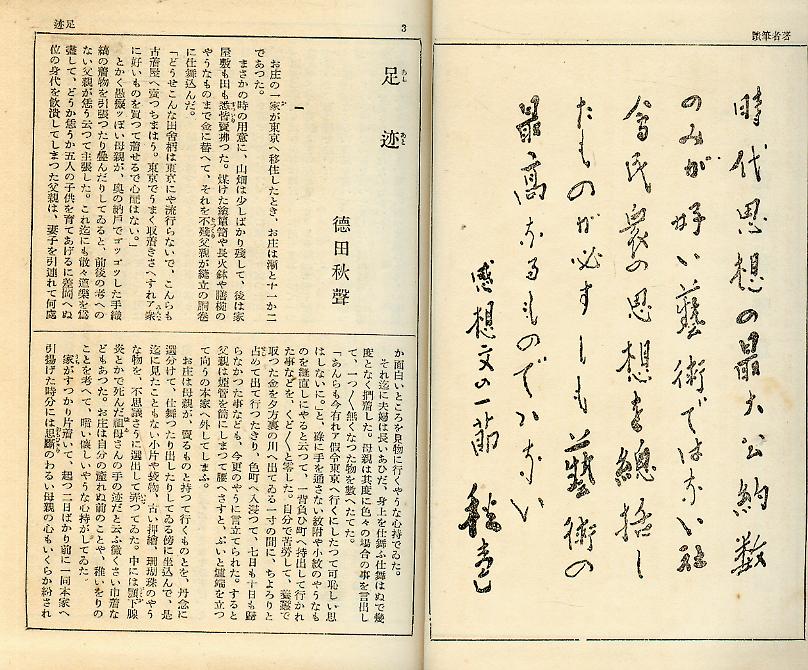 著者筆蹟
時代思想の最大公約数
のみが好い藝術ではない社
会民衆の思想を總括し
たものが必ずしも藝術の
最高なるものでハない
感想文の一節 秋聲
足迹
3
足迹
徳田秋聲
一
お庄の一家が東京へ移住したとき、お庄は漸と十一か二
であつた。
まさかの時の用意に、山畑は少しばかり残して、後は家
屋敷も田も悉皆賣拂つた。煤けた塗箪笥や長火鉢や膳椀の
やうなものまで金に替へて、それを不残父親が縫立の胴巻
に仕舞込んだ。
「どうせこんな田舎柄は東京にや流行らないで、こんらも
古着屋へ賣つちまはう。東京でうまく取着きさへすれア衆
に好いものを買つて着せるで心配はない。」
とかく愚痴ッぽい母親が、奥の納戸でゴツゴツした手織
縞の着物を引張つたり疊んだりしてゐると、前後の考への
ない父親が恁う云つて主張した。これ迄にも散々道樂を為
盡して、どうか恁うか五人の子供を育てあげるに差閊へぬ
位の身代を飲潰してしまつた父親は、妻子を引連れて何處
か面白いところを見物に行くやうな心持でゐた。
それ迄に夫婦は長いあひだ、身上を仕舞ふ仕舞はぬで幾
度となく捫着した。母親は其度に色々の場合の事を言出し
て、一つ／＼無くなつた物を數へたてた。
「あんらも今有れア假令東京へ行くにしたつて可恥しい思
はしないに。」と、碌に手を通さない紋附や小紋のやうなも
のを縫直しにやると云つて、一背負ひ町へ持出して行かれ
た事などを、くど／＼と零した。自分で苦勞して、養蠶で
取つた金を夕方裏の川へ出てゐる一寸の間に、ちよろりと
占めて出て行つたきり、色町へ入浸つて、七日も十日も歸
らなかつた事なども、今更のやうに言立てられた。すると
父親は煙管を筒にしまつて腰へさすと、ぷいと爐端を立つ
て向うの本家へ外してしまふ。
お庄は母親が、賣るものと持つて行くものとを、丹念に
選分けて、仕舞つたり出したりしてゐる傍に坐込んで、是
迄に見たこともない小片や袋物、古い押繪、珊瑚珠のやう
な物を、不思議さうに選出しては弄つてゐた。中には顎下腺
炎とかで死んだ祖母さんの手の迹だと云ふ黴くさい巾着な
どもあつた。お庄は自分の産れぬ前のことや、稚いをりの
ことを考へて、暗い懐しいやうな心持がしてゐた。
家がすつかり片着いて、起つ二日ばかり前に一同本家へ
引揚げた時分には思斷のわるい母親の心もいくらか紛され